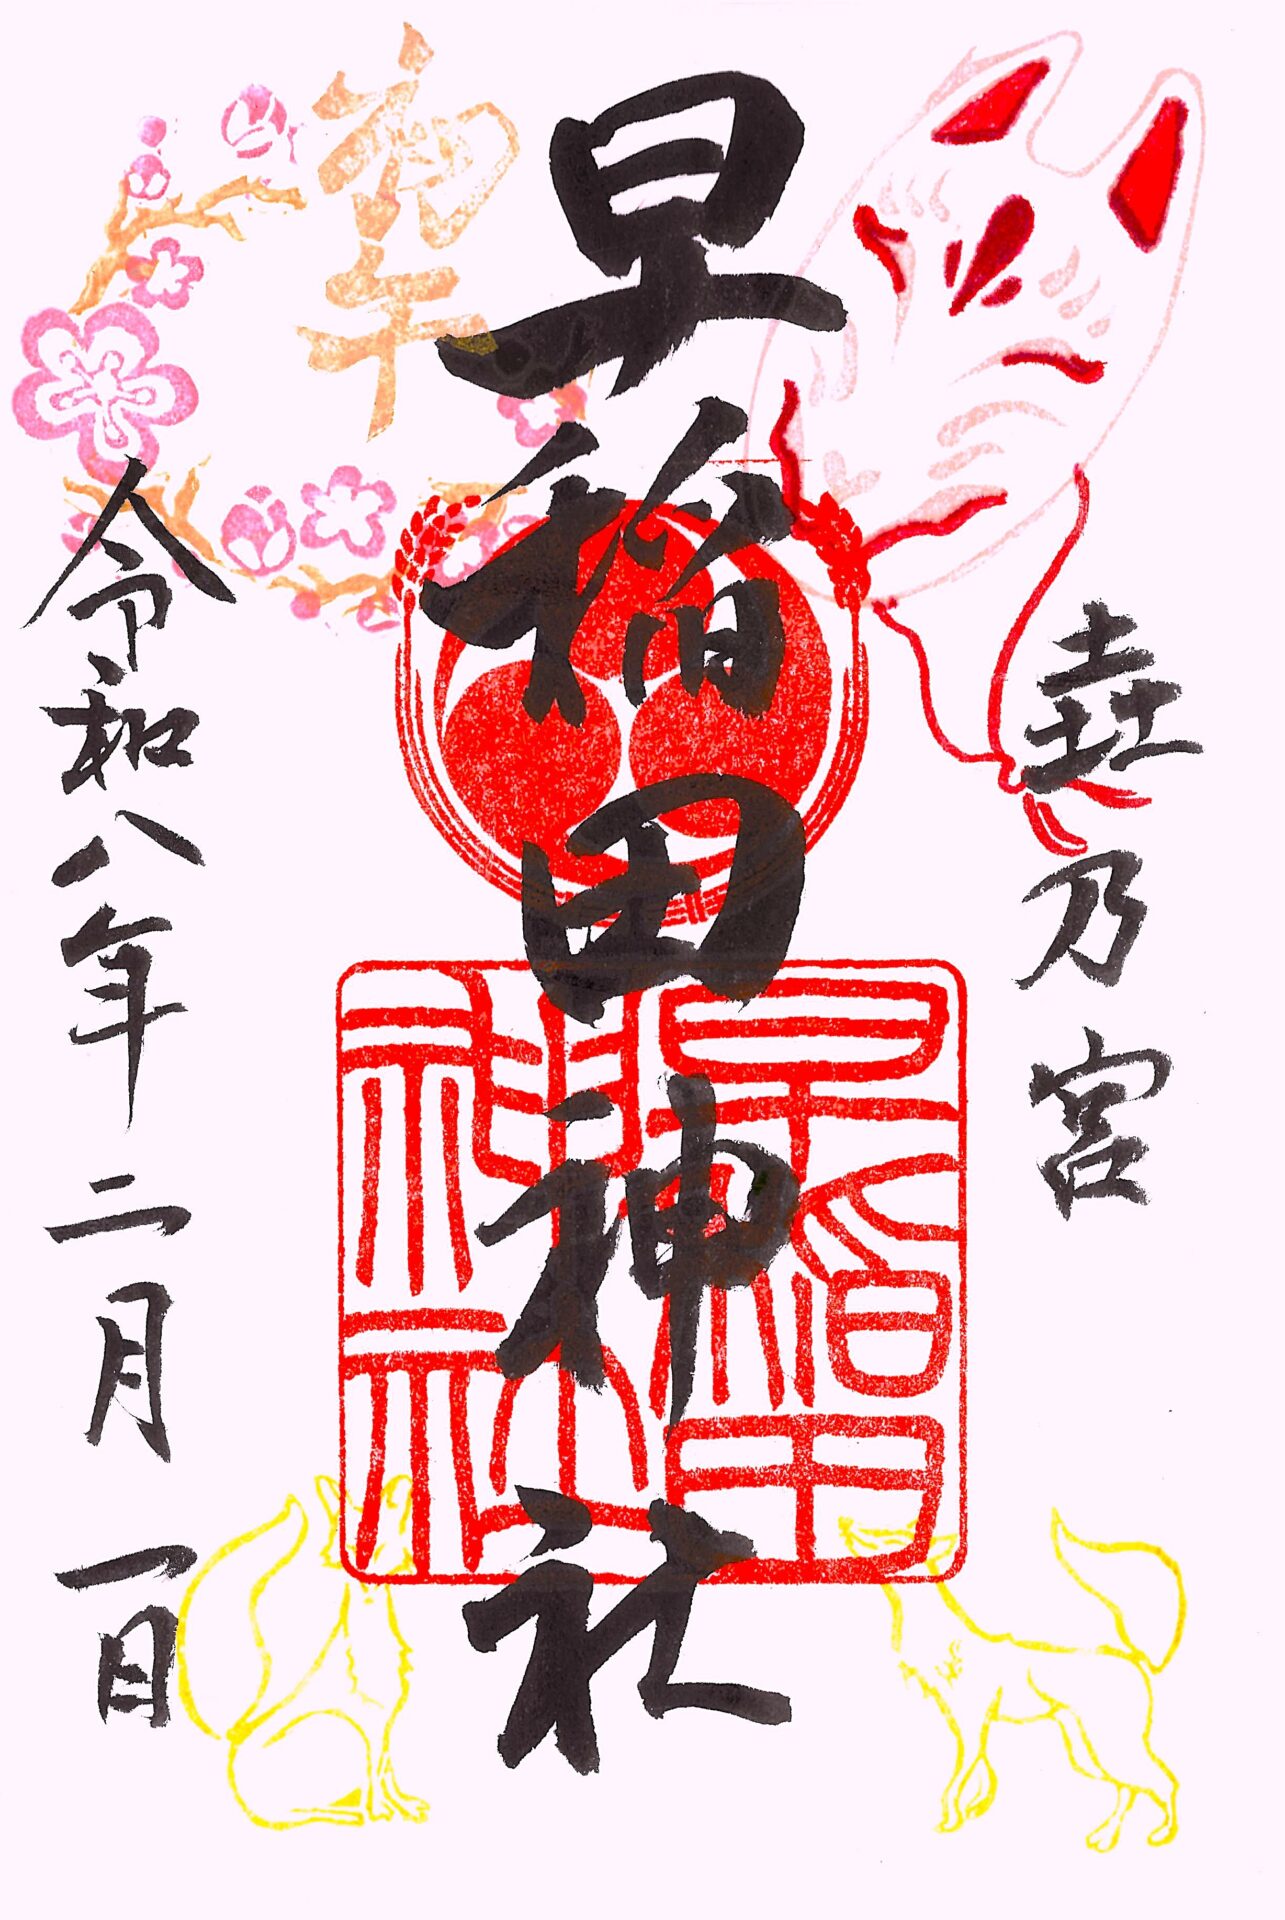 乃宮
早稲田神社
初午
令和八年二月一日
早稲田
神社